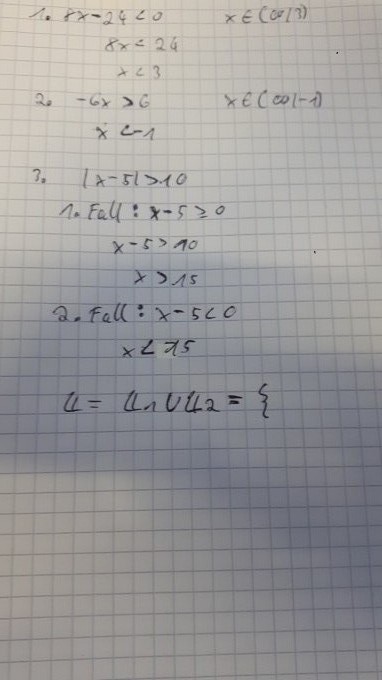 1. 8x-24<0 x∈(∞|3)
8x<24
x<3
2. -6x>6 x∈(∞|-1)
x<-1
3. |x-5|>10
1. Fall: x-5≥0
x-5>10
x>15
2. Fall: x-5<0
x<15
𝕃= 𝕃1∪𝕃2={